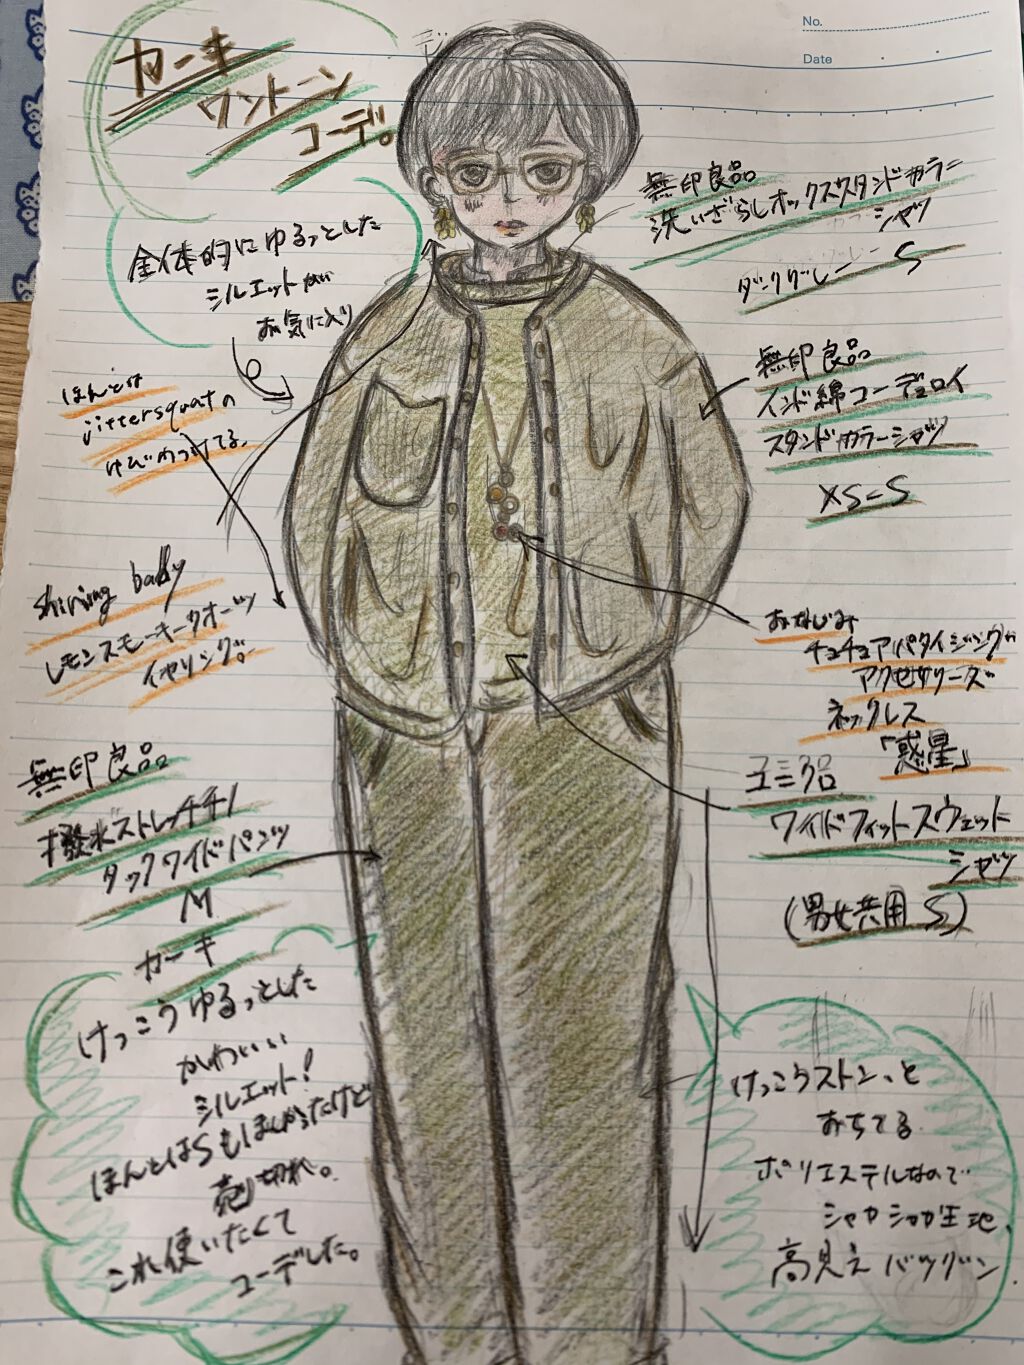 No.
Date
カーキ
ワントーン
コーデ。
全体的にゆるっとした
シルエットが
お気に入り
ほんとは
jittersquatの
ゆびわつけてる。
shining body
レモンスモーキークオーツ
イヤリング。
無印良品
撥水ストレッチチノ
タックワイドパンツ
M
カーキ
けっこうゆるっとした
かわいい
シルエット!
ほんとはSもほしかったけど
売切れ。
これ使いたくて
コーデした。
無印良品
洗いざらしオックススタンドカラー
シャツ
ダークグレー S
無印良品
インド綿コーデュロイ
スタンドカラーシャツ
XS-S
おなじみ
チュチュアパタイジング
アクセサリーズ
ネックレス
「惑星」
ユニクロ
ワイドフィットスウェット
シャツ
(男女共用 S)
けっこうストン、と
おちてる
ポリエステルなので
シャカシャカ生地、
高見えバツグン